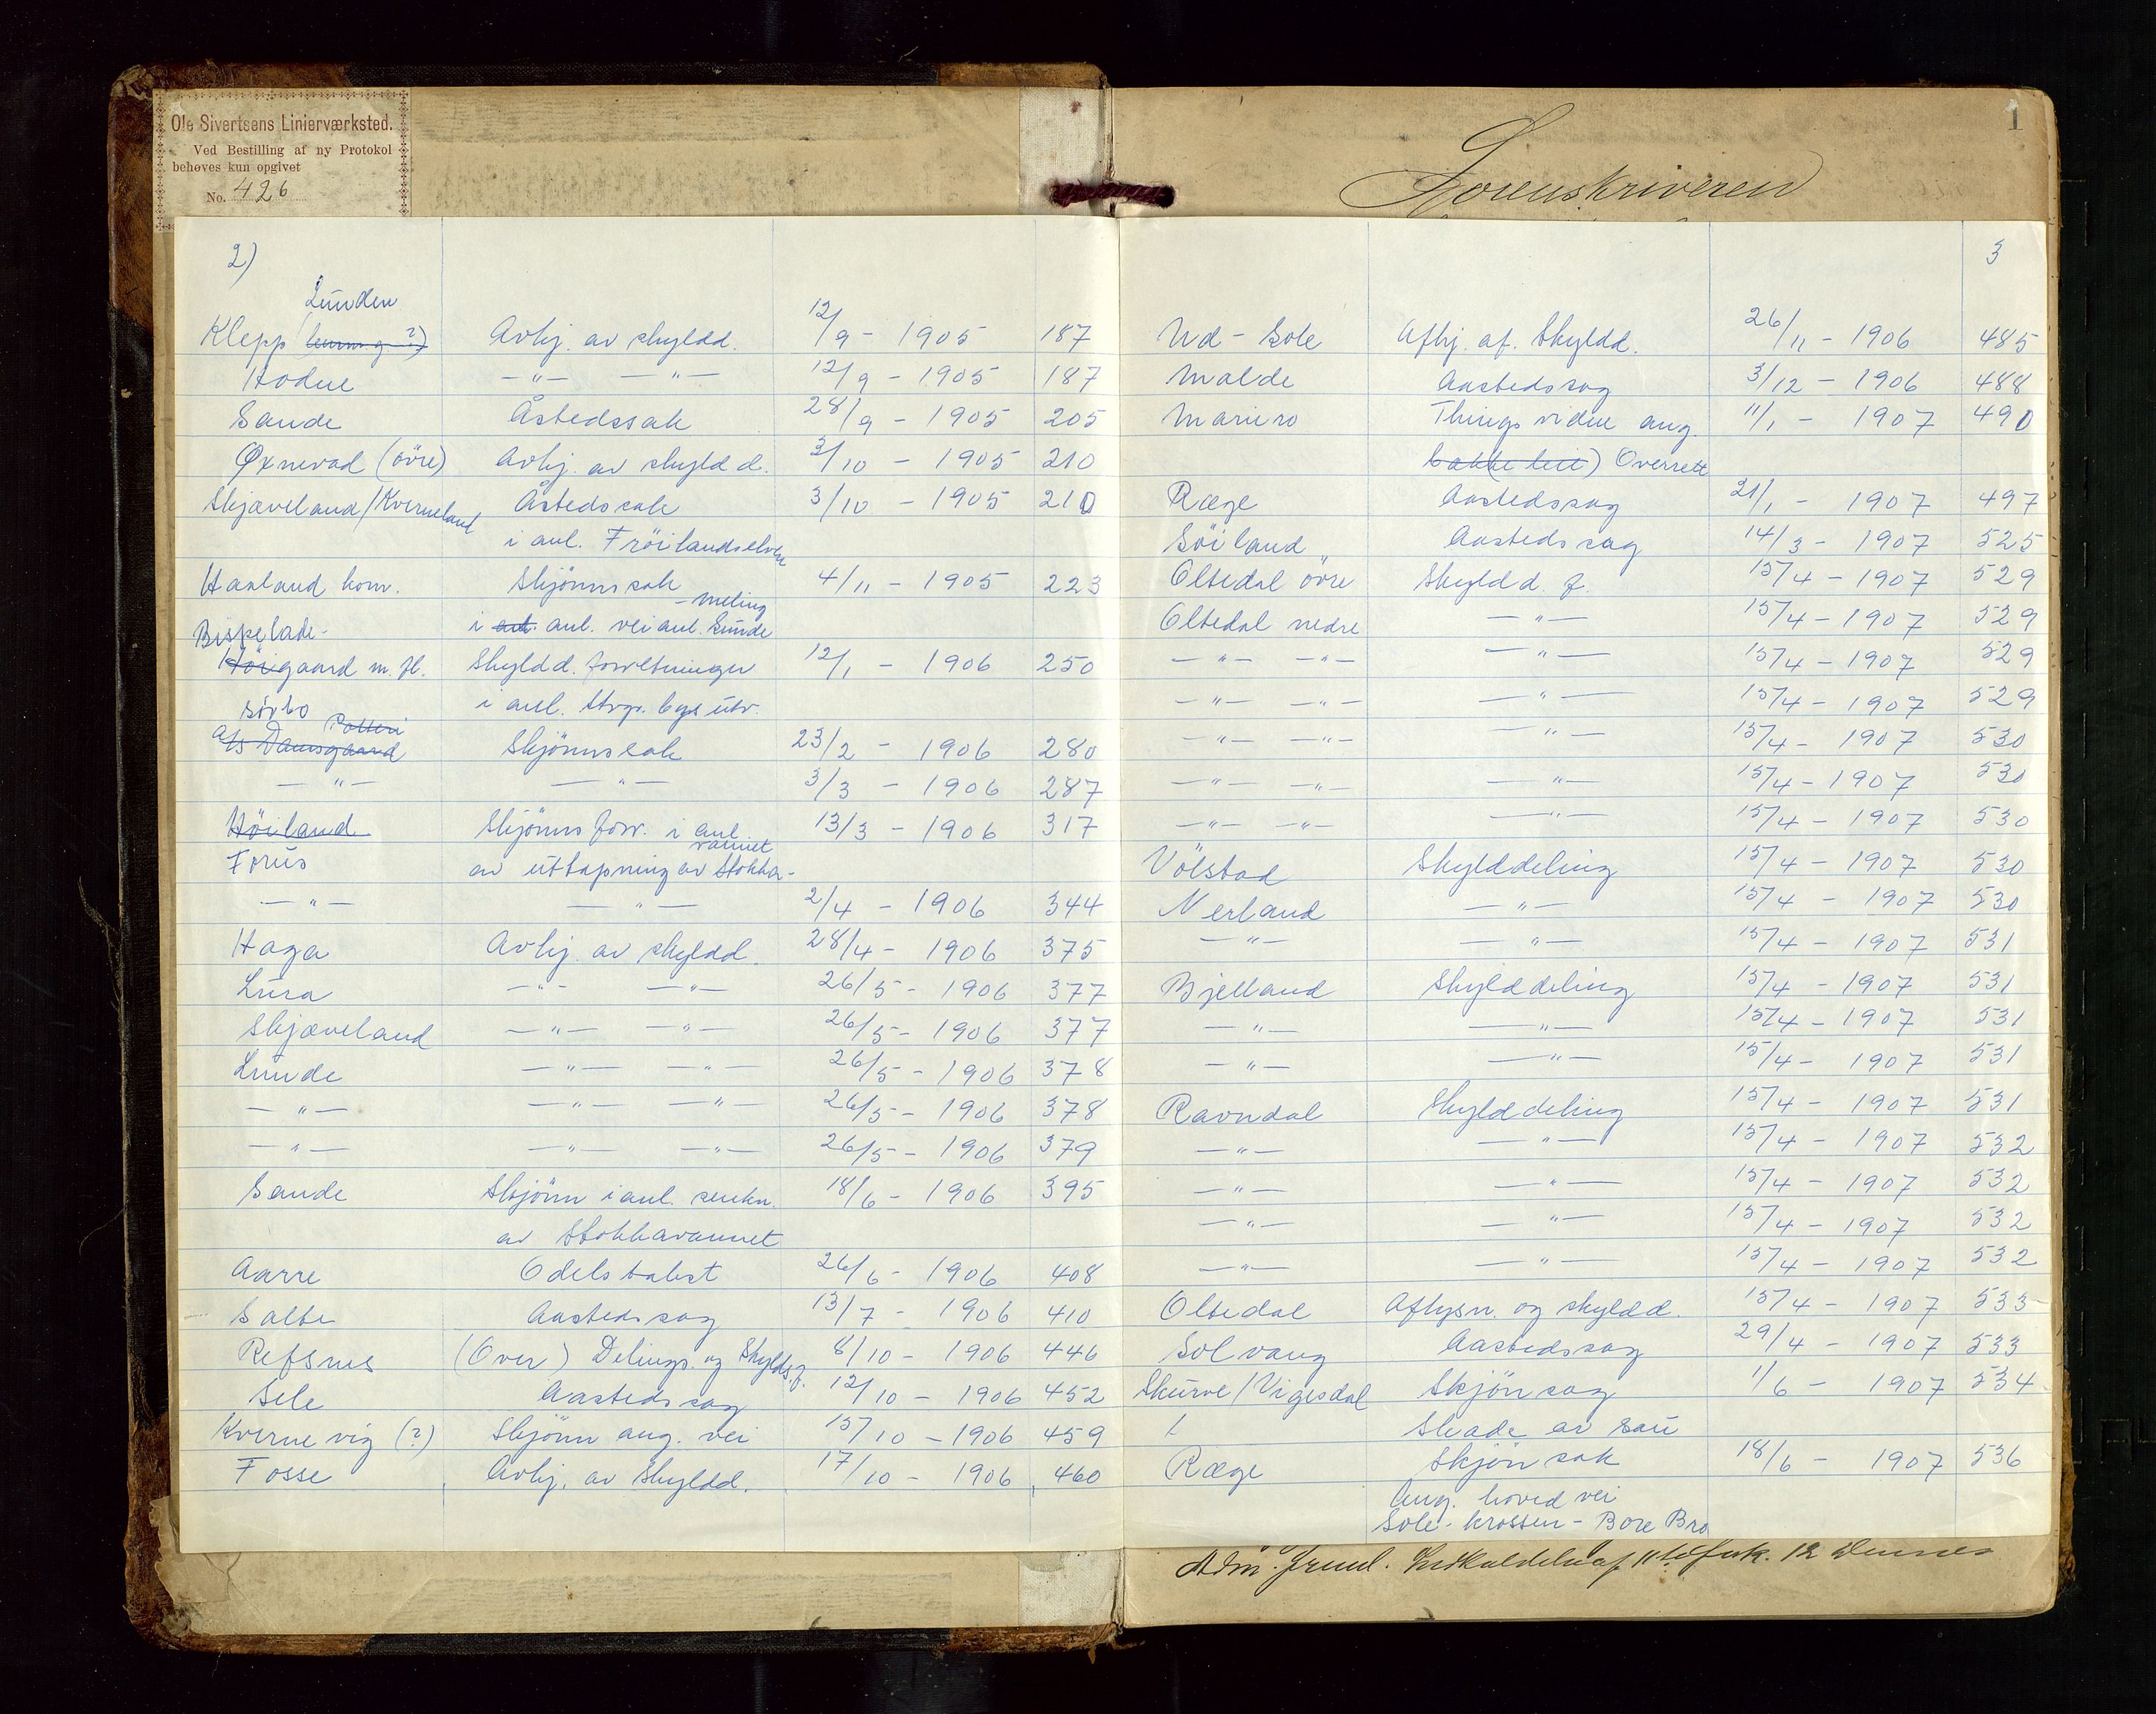 Ole Sivertsens Linierværksted.
Ved Bestilling af ny Protokol
behøves kun opgivet
No. 426
2)
Lunden
Klepp Avhj. av skyldd. 12/9 - 1905 187
Hodne -"- -"- 12/9 - 1905 187
Sande Åstedssak 28/9 - 1905 205
Øxnevad (övre) Avhj. av skyldd. 3/10 - 1905 210
Skjæveland/Kverneland Åstedssak 3/10 - 1905 210
i anl. Fröilandselven
Haaland kom. Skjönnssak 4/11 - 1905 223
-meling
i anl. veianl. Sunde
Bispelade-
Höigaard m.fl. Skyldd. forretninger 12/1 - 1906 250
sörbo i anl. Stvgr. bys utv.
Potteri
A/S Damsgaard Skjönnssak 23/2 - 1906 280
-"- -"- 3/3 - 1906 287
Höiland Skjönns forr. i anl. 13/3 - 1906 317
vannet
Forus av uttapning av Stokka-
-"- -"- 2/4 - 1906 344
Haga Avhj. av skyldd. 28/4 - 1906 375
Lura -"- -"- 26/5 - 1906 377
Skjæveland -"- -"- 26/5 - 1906 377
Lunde -"- -"- 26/5 - 1906 378
-"- -"- -"- 26/5 - 1906 378
-"- -"- -"- 26/5 - 1906 379
Sande Skjönn i anl. senkn. 18/6 - 1906 395
av Stokkavannet
Aarre Odelstakst 26/6 - 1906 408
Salte Aastedssag 13/7 - 1906 410
Refsnes (Over) Delings. og Skylds.f. 8/10 - 1906 446
Sele Aastedssag 12/10 - 1906 452
Kvernevig (?) Skjönn ang. vei 15/10 - 1906 459
Fosse Avhj. av Skyldd. 17/10 - 1906 460
1
Sorenskriveren
3
Ud-Sole Afhj. af. Skyldd. 26/11 - 1906 485
Malde Aastedssag 3/12 - 1906 488
Mariero Thingsvidne ang. 11/1 - 1907 490
bakke leie) Overrett
Ræge Aastedssag 21/1 - 1907 497
Söiland Aastedssag 14/3 - 1907 525
Oltedal övre Skyldd. f. 15/4 - 1907 529
Oltedal nedre -"- 15/4 - 1907 529
-"- -"- -"- 15/4 - 1907 529
-"- -"- -"- 15/4 - 1907 529
-"- -"- -"- 15/4 - 1907 530
-"- -"- -"- 15/4 - 1907 530
-"- -"- -"- 15/4 - 1907 530
Völstad Skylddeling 15/4 - 1907 530
Nerland -"- 15/4 - 1907 530
-"- -"- 15/4 - 1907 531
Bjelland Skylddeling 15/4 - 1907 531
-"- -"- 15/4 - 1907 531
-"- -"- 15/4 - 1907 531
Ravndal Skylddeling 15/4 - 1907 531
-"- -"- 15/4 - 1907 532
-"- -"- 15/4 - 1907 532
-"- -"- 15/4 - 1907 532
-"- -"- 15/4 - 1907 532
Oltedal Aflysn. og skyldd. 15/4 - 1907 533
Solvang Aastedssag 29/4 - 1907 533
Skurve/Vigesdal Skjönsag 1/6 - 1907 534
Skade av sau
Ræge Skjönsak 18/6 - 1907 536
Ang. hoved vei
Sole-krossen - Bore Bro